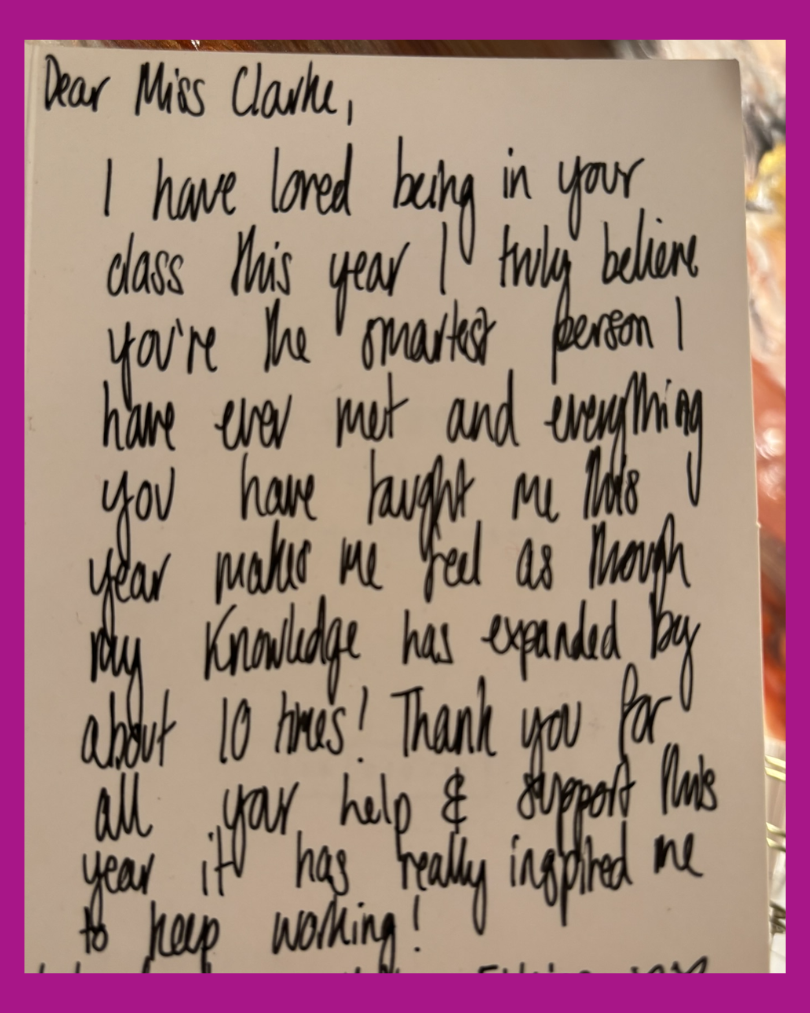 Dear Miss Clarke,
I have loved being in your
class this year I truly believe
you're the smartest person I
have ever met and everything
you have taught me this
year makes me feel as though
my knowledge has expanded by
about 10 times! Thank you for
all your help & support this
year it has really inspired me
to keep working!